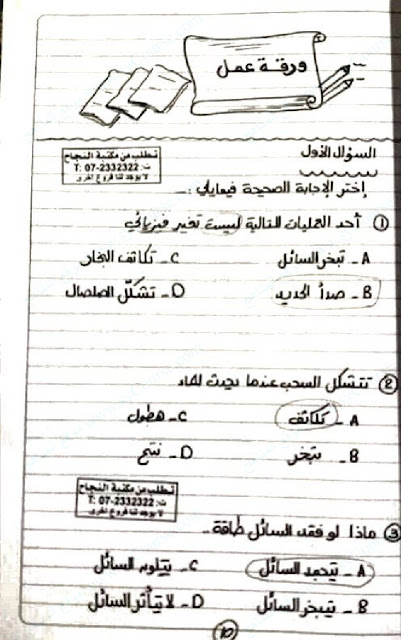 ورقة عمل
السؤال الأول
تطلب من مكتبة النجاح
ت: 07-2332322 :T
لا يوجد لنا فروع اخرى
إختر الإجابة الصحيحة فيمايلي :ـ
① أحد العمليات التالية ليست تغير فيزيائي
A - تبخر السائل C - تكاثف البخار
B - صدأ الحديد D - تشكّل الصلصال
② تتشكل السحب عندما يحدث للماء
A - تكاثف C - هطول
B - تبخر D - نتح
تطلب من مكتبة النجاح
ت: 07-2332322 :T
لا يوجد لنا فروع اخرى
③ ماذا لو فقد السائل طاقة ـ
A - يتجمد السائل C - يتلون السائل
B - يتبخر السائل D - لا يتأثر السائل